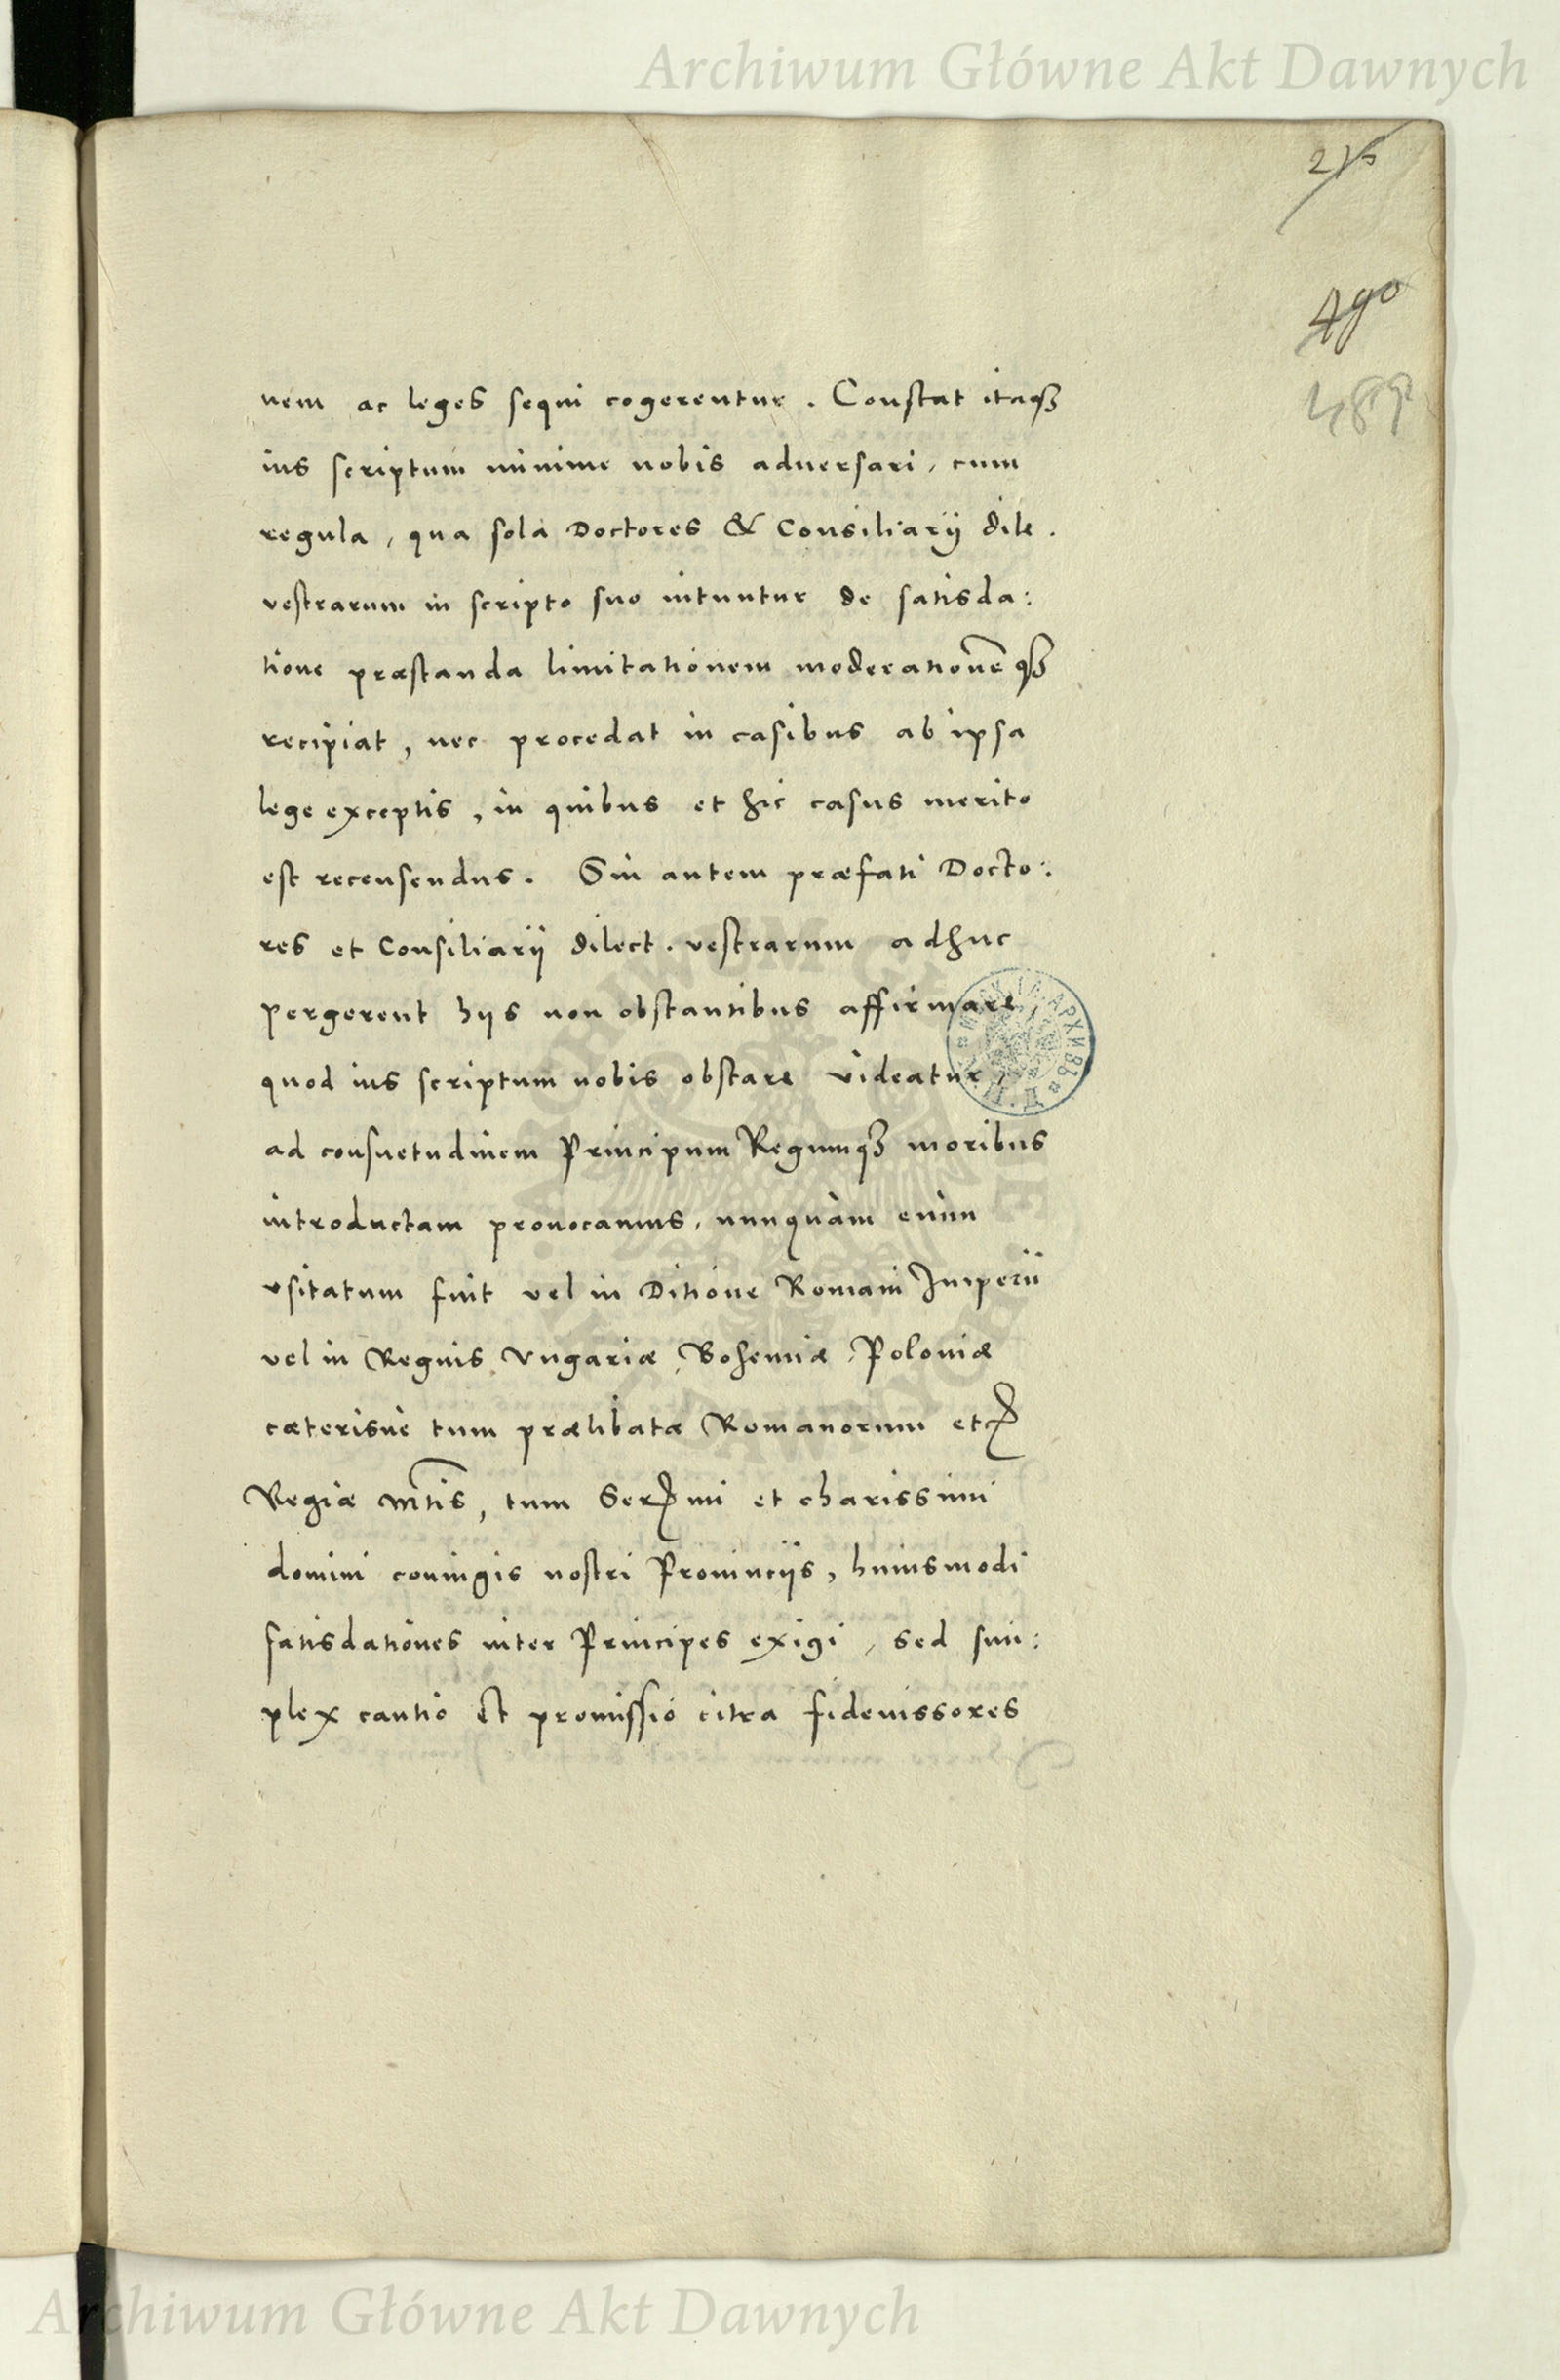 Archiwum Główne Akt Dawnych
490
489
nem ac leges sequi cogerentur. Constat itaqꝫ
ius scriptum minime nobis aduersari, cum
regula, qua sola Doctores & Consiliarij dile.
vestrarum in scripto suo nituntur de satisda:
tione præstanda limitationem moderationēqꝫ
recipiat, nec procedat in casibus ab ipsa
lege exceptis, in quibus et hic casus merito
est recensendus. Sin autem præfati Docto:
res et Consiliarij dilect. vestrarum adhuc
pergerent hijs non obstantibus affirmare,
quod ius scriptum nobis obstare videatur,
ad consuetudinem Principum Regumqꝫ moribus
introductam prouocamus, nunquam enim
vsitatum fuit vel in Ditione Romani Imperii
vel in Regnis Vngariæ, Bohemiæ, Poloniæ
cæterisue tum prælibatæ Romanorum etc
Regiæ Mtis, tum Sermi et charissimi
domini coniugis nostri Prouincijs, huiusmodi
satisdationes inter Principes exigi, sed sim:
plex cautio et promissio citra fideiussores
Archiwum Główne Akt Dawnych